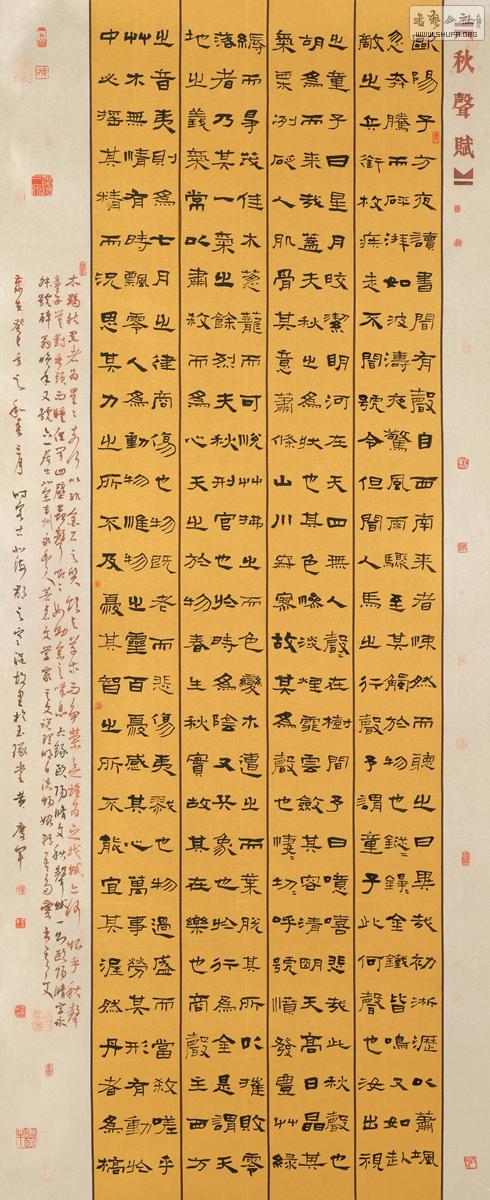 秋聲賦
歐陽子方夜讀書聞有聲自西南來者悚然而聽之曰異哉初淅瀝以蕭颯
忽奔騰而砰湃如波濤夜驚風雨驟至其觸於物也鏦〻錚〻金鐵皆鳴又如赴
敵之兵銜枚疾走不聞號令但聞人馬之行聲予謂童子此何聲也汝出視
之童子曰星月皎潔明河在天四無人聲〻在樹間予曰噫嘻悲哉此秋聲也
胡為而來哉蓋夫秋之為狀也其色慘淡煙霏雲斂其容清明天高日晶其
氣栗冽砭人肌骨其意蕭條山川寂寥故其為聲也悽〻切〻呼號憤發豐艸綠
縟而爭茂佳木蔥蘢而可悅艸拂之而色變木遭之而葉脫其所以摧敗零
落者乃其一氣之餘烈夫秋刑官也於時為陰又兵象也於行為金是謂天
地之義氣常以肅殺而為心天之於物春生秋實故其在樂也商聲主西方
之音夷則為七月之律商傷也物既老而悲傷夷戮也物過盛而當殺嗟乎
艸木無情有時飄零人為動物惟物之靈百憂感其心萬事勞其形有動於
中必搖其精而況思其力之所不及憂其智之所不能宜其渥然丹者為槁
木黟然黑者為星〻奈何以非金石之質欲與草木而爭榮念誰為之戕賊亦何恨乎秋聲
童子莫對垂頭而睡但聞四壁蟲聲唧〻如助余之嘆息右錄歐陽脩文秋聲賦一篇歐陽脩字永
叔號醉翁晚年又號六一居士北宋吉州永豐人著名文學家其文說理明白流暢
歲在癸巳年之和春三月
黃慶軍
WWW.SHUFA.ORG